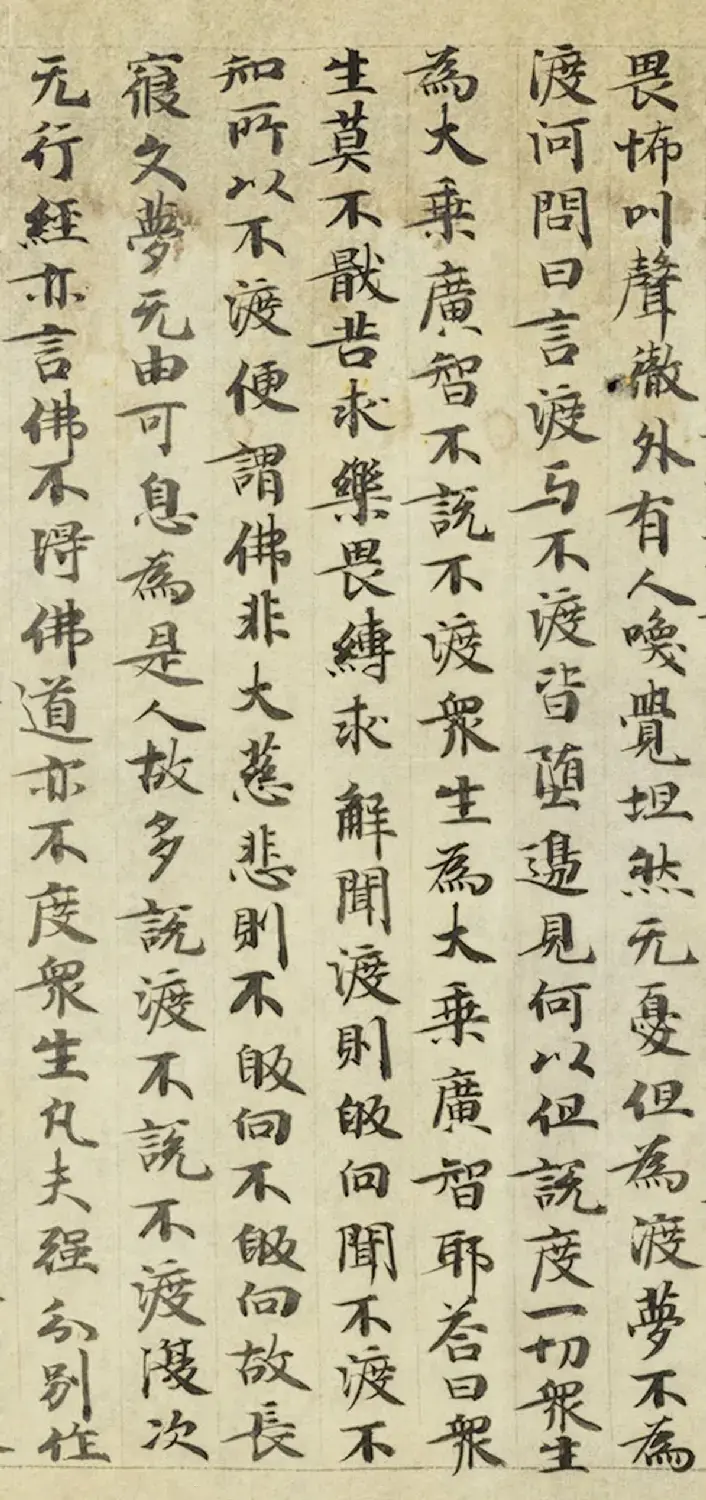 畏怖叫聲徹外有人喚覺坦然无憂但為渡夢不為
渡河問曰言渡与不渡皆墮邊見何以但說度一切衆生
為大乗廣智不說不渡衆生為大乗廣智耶荅曰衆
生莫不猒苦求樂畏縛求解聞渡則皈向聞不渡不
知所以不渡便謂佛非大慈悲則不皈向不皈向故長
寢久夢无由可息為是人故多說渡不說不渡澓次
无行經亦言佛不得佛道亦不度衆生凡夫强分别作